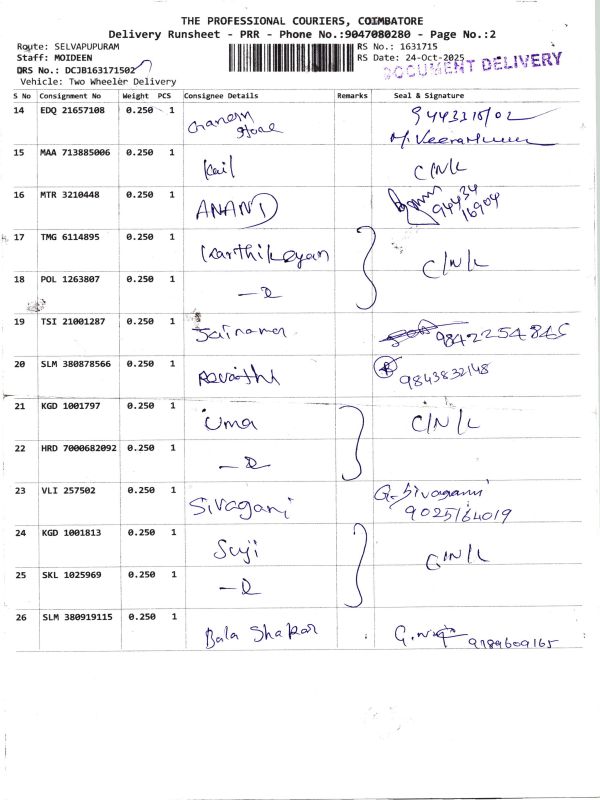 THE PROFESSIONAL COURIERS, COIMBATORE
Delivery Runsheet - PRR - Phone No.:9047080280 - Page No.:2
Route: SELVAPUPURAM
Staff: MOIDEEN
DRS No.: DCJB163171502
Vehicle: Two Wheeler Delivery
RS No.: 1631715
RS Date: 24-Oct-2025
DOCUMENT DELIVERY
S No Consignment No Weight PCS Consignee Details Remarks Seal & Signature
14 EDQ 21657108 0.250 1 Ganesh Store
15 MAA 713885006 0.250 1 Kail C/N/L
16 MTR 3210448 0.250 1 ANAND 94434 16904
17 TMG 6114895 0.250 1 Karthikeyan C/N/L
18 POL 1263807 0.250 1
19 TSI 21001287 0.250 1 9842254845
20 SLM 380878566 0.250 1 9843832148
21 KGD 1001797 0.250 1 Uma C/N/L
22 HRD 7000682092 0.250 1
23 VLI 257502 0.250 1 Sivagani G. Sivagami
9025164019
24 KGD 1001813 0.250 1 Suji C/N/L
25 SKL 1025969 0.250 1
26 SLM 380919115 0.250 1 Bala Shakar 9789609165